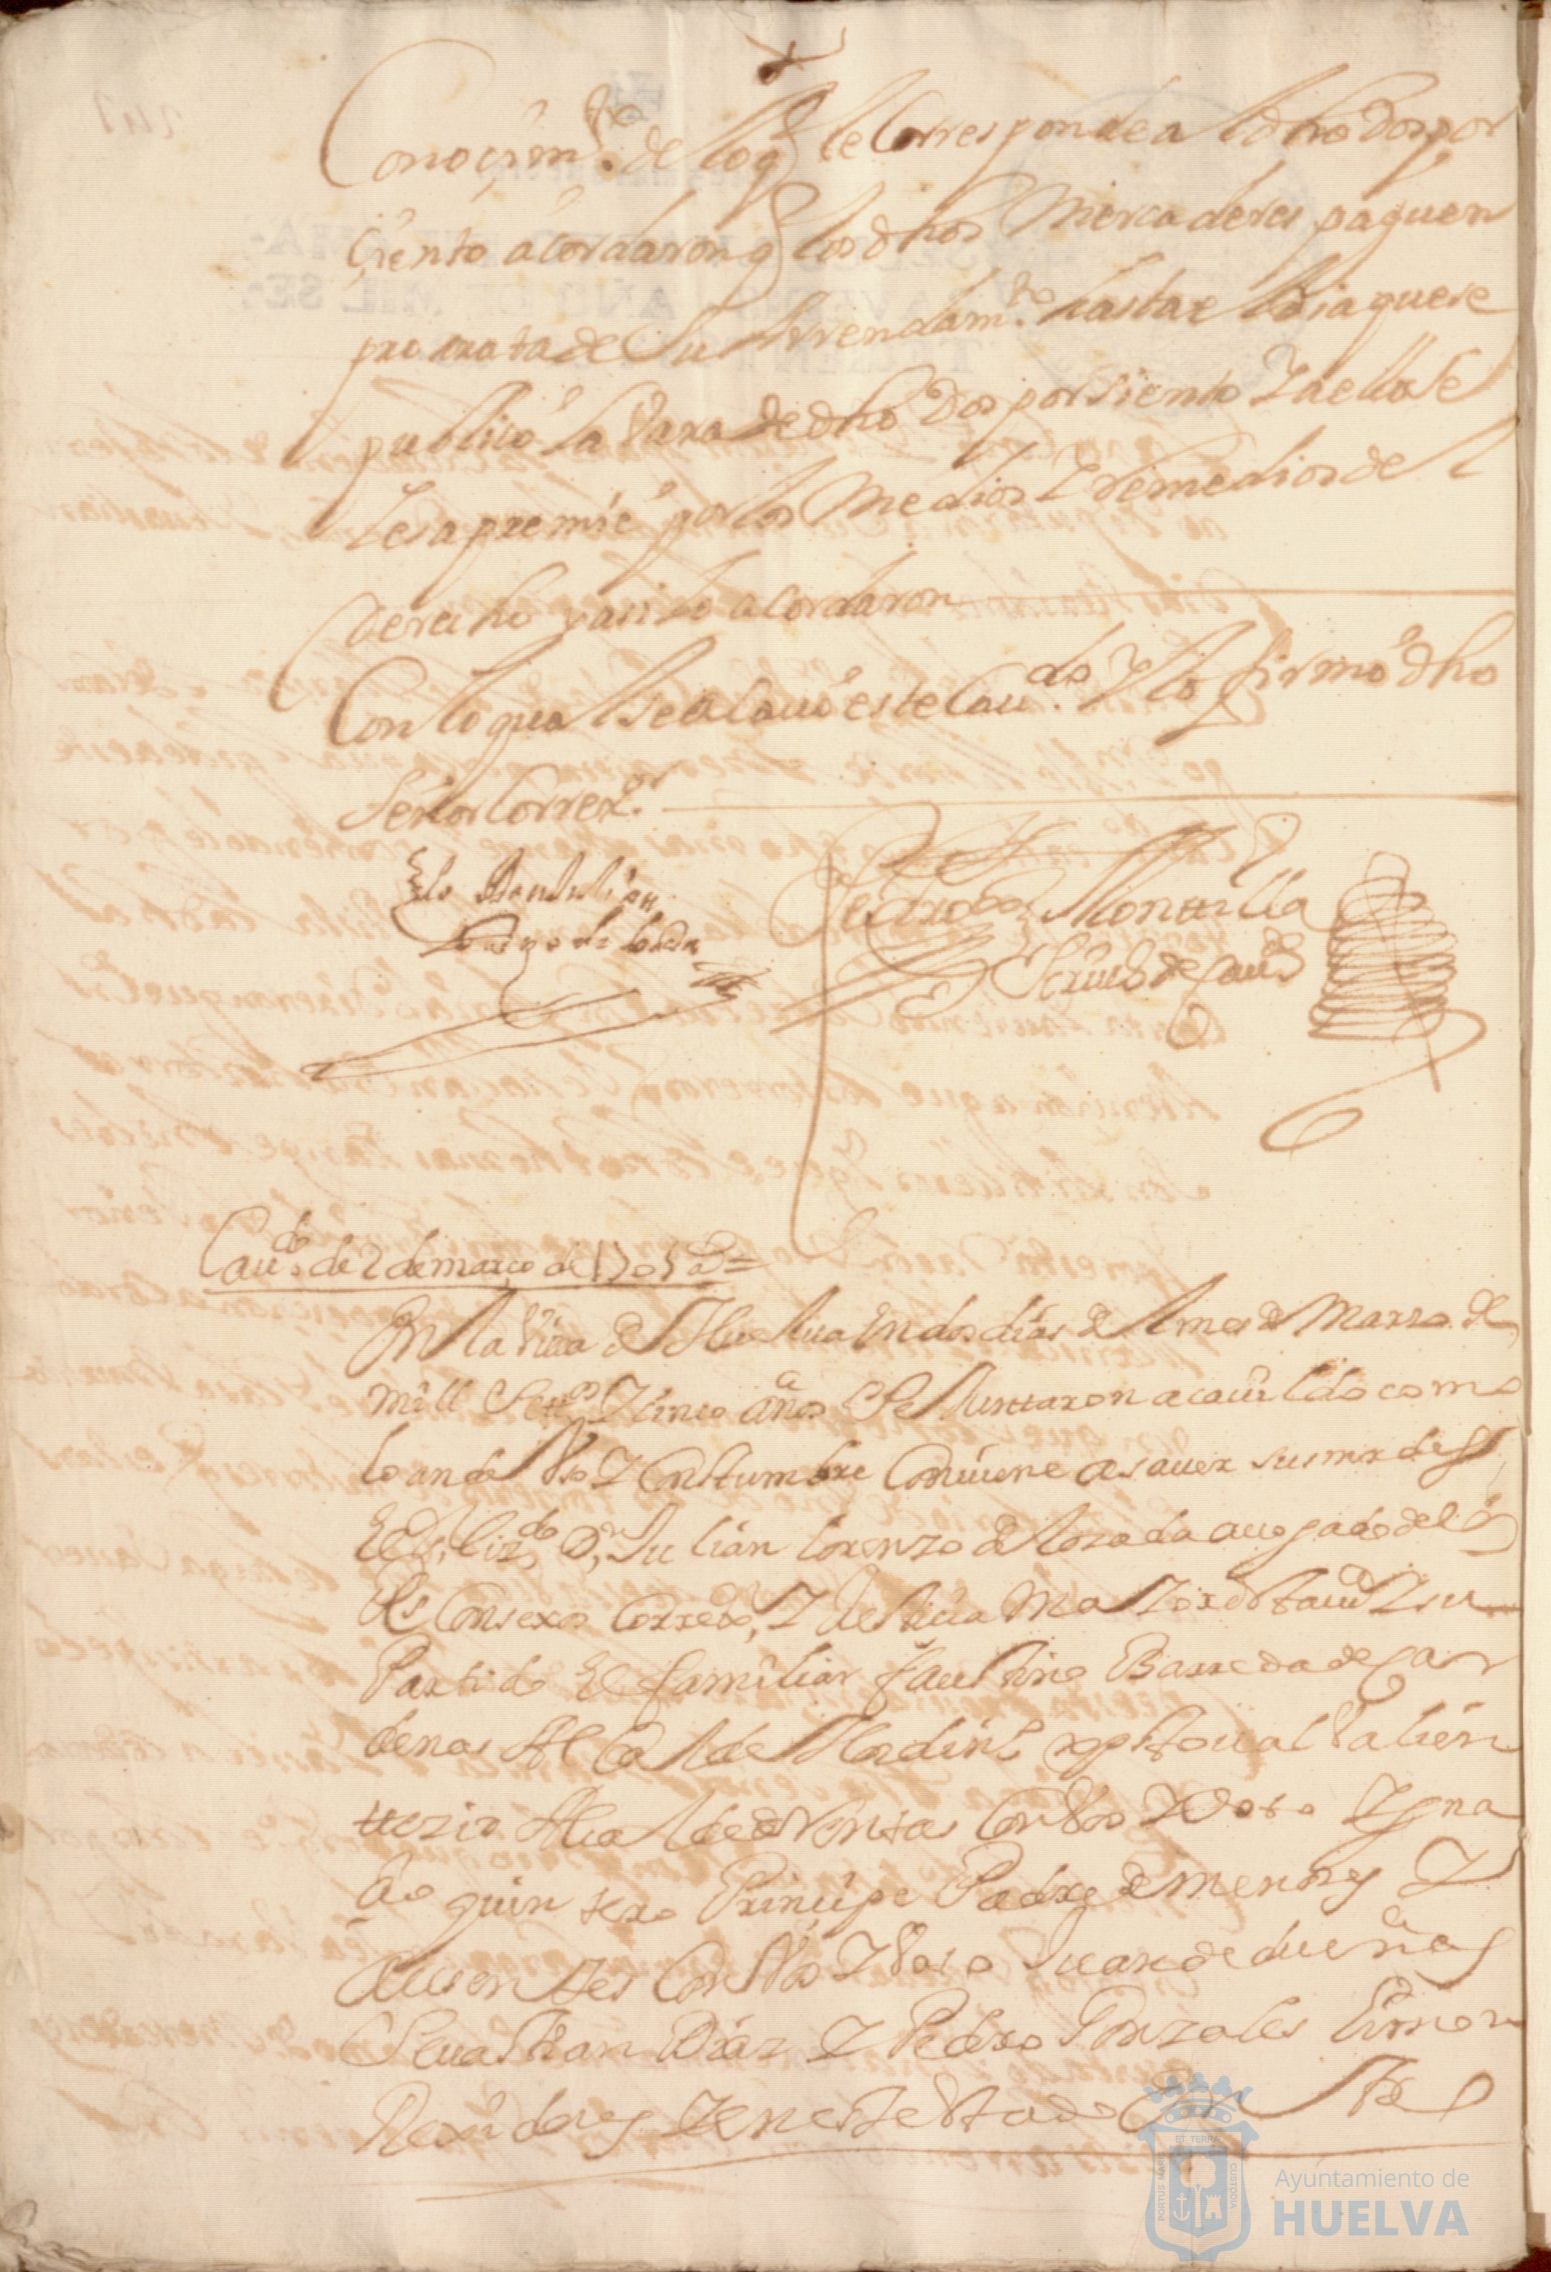 Conocim.to de lo q le Corresponde al dho Dos por
Ciento acordaron q los dhos Mercaderes paguen
pro rata de Su Arrendam.to hasta el dia que se
publicó la vaxa de dho Dos por Siento Y a ello Se
les apremie por los Medios Y remedios del
derecho y asi lo acordaron
Con lo qual Se acauó este Cau.do Y lo firmó dho
Señor Correx.or
Pedro de Montilla
Scriu.o de Cau.do
Cau.do de 2 de março de 1705 a.s =
En la Villa de Huelua En dos dias del mes de Marzo de
mill Setts.os Y Cinco años Se Juntaron a cauildo como
lo an de Uso Y Costumbre Conuiene a sauer sus mrdes
El S.r Liz.do D.n Julian Lorenzo de Lozada auogado de los
Rs Consexos Correxor Y Justicia Maior de esta Villa Y su
Partido El familiar faustino Barreda de Car
denas Alcalde Hordin.o xptoual Valien
te ruiz Alcalde de Rentas Con Voz Y Voto Ygna
cio quintero Principe Padre de menores Y
Ausentes Con Voz Y Voto Juan de dueñas
Seuastian Diaz Y Pedro Gonzales Limon
Rexidores Y en este Estado
Ayuntamiento de
HUELVA
PORTUS MARIS
ET TERRAE
CUSTODIA